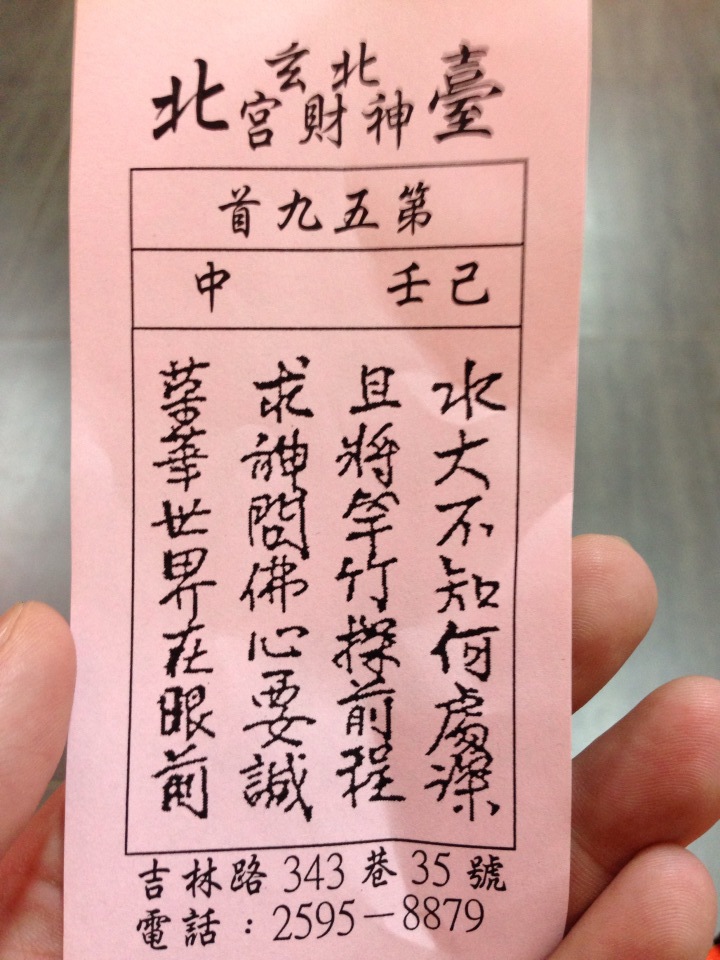 臺北
北玄
神財宮
第五九首
己壬 中
水大不知何處深
且將竿竹探前程
求神問佛心要誠
榮華世界在眼前
吉林路343巷35號
電話：2595－8879